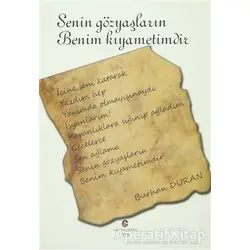 Senin gözyaşların
Benim kıyametimdir
İçine seni katarak
Yazdım hep
Yanımda olmayışınaydı
İsyanlarım!
Karanlıklara sığınıp ağladım
Gecelerce
Sen ağlama
Senin gözyaşların
Benim kıyametimdir
Burhan DURAN